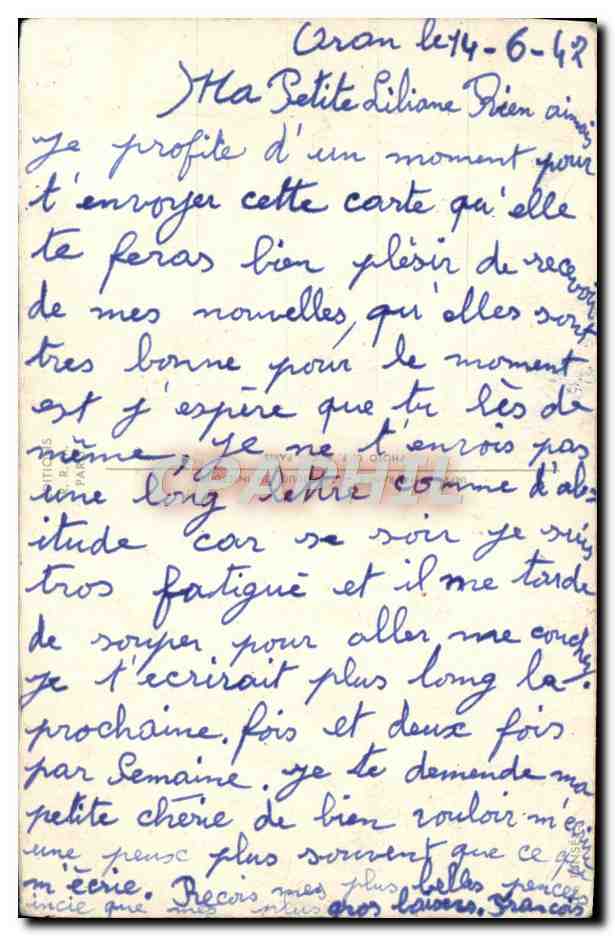 Oran le 14-6-42
Ma Petite Liliane Bien aimais
Je profite d'un moment pour
t'envoyer cette carte qu'elle
te feras bien plésir de recevoir
de mes nouvelles, qu'elles sont
tres bonne pour le moment
est j'espère que tu lès de
même, Je ne t'envois pas
une long lettre comme d'abs
itude car se soir je suis
tros fatiguè et il me tarde
de souper pour aller me coucher.
Je t'ècrirait plus long la
prochaine. fois et deux fois
par Semaine. Je te demende ma
petite chérie de bien vouloir m'écrire
une peux plus souvent que ce que
m'ècrie. Recois mes plus belles pencées
incie que mes plus gros baisers. Francois
CPAPHIL